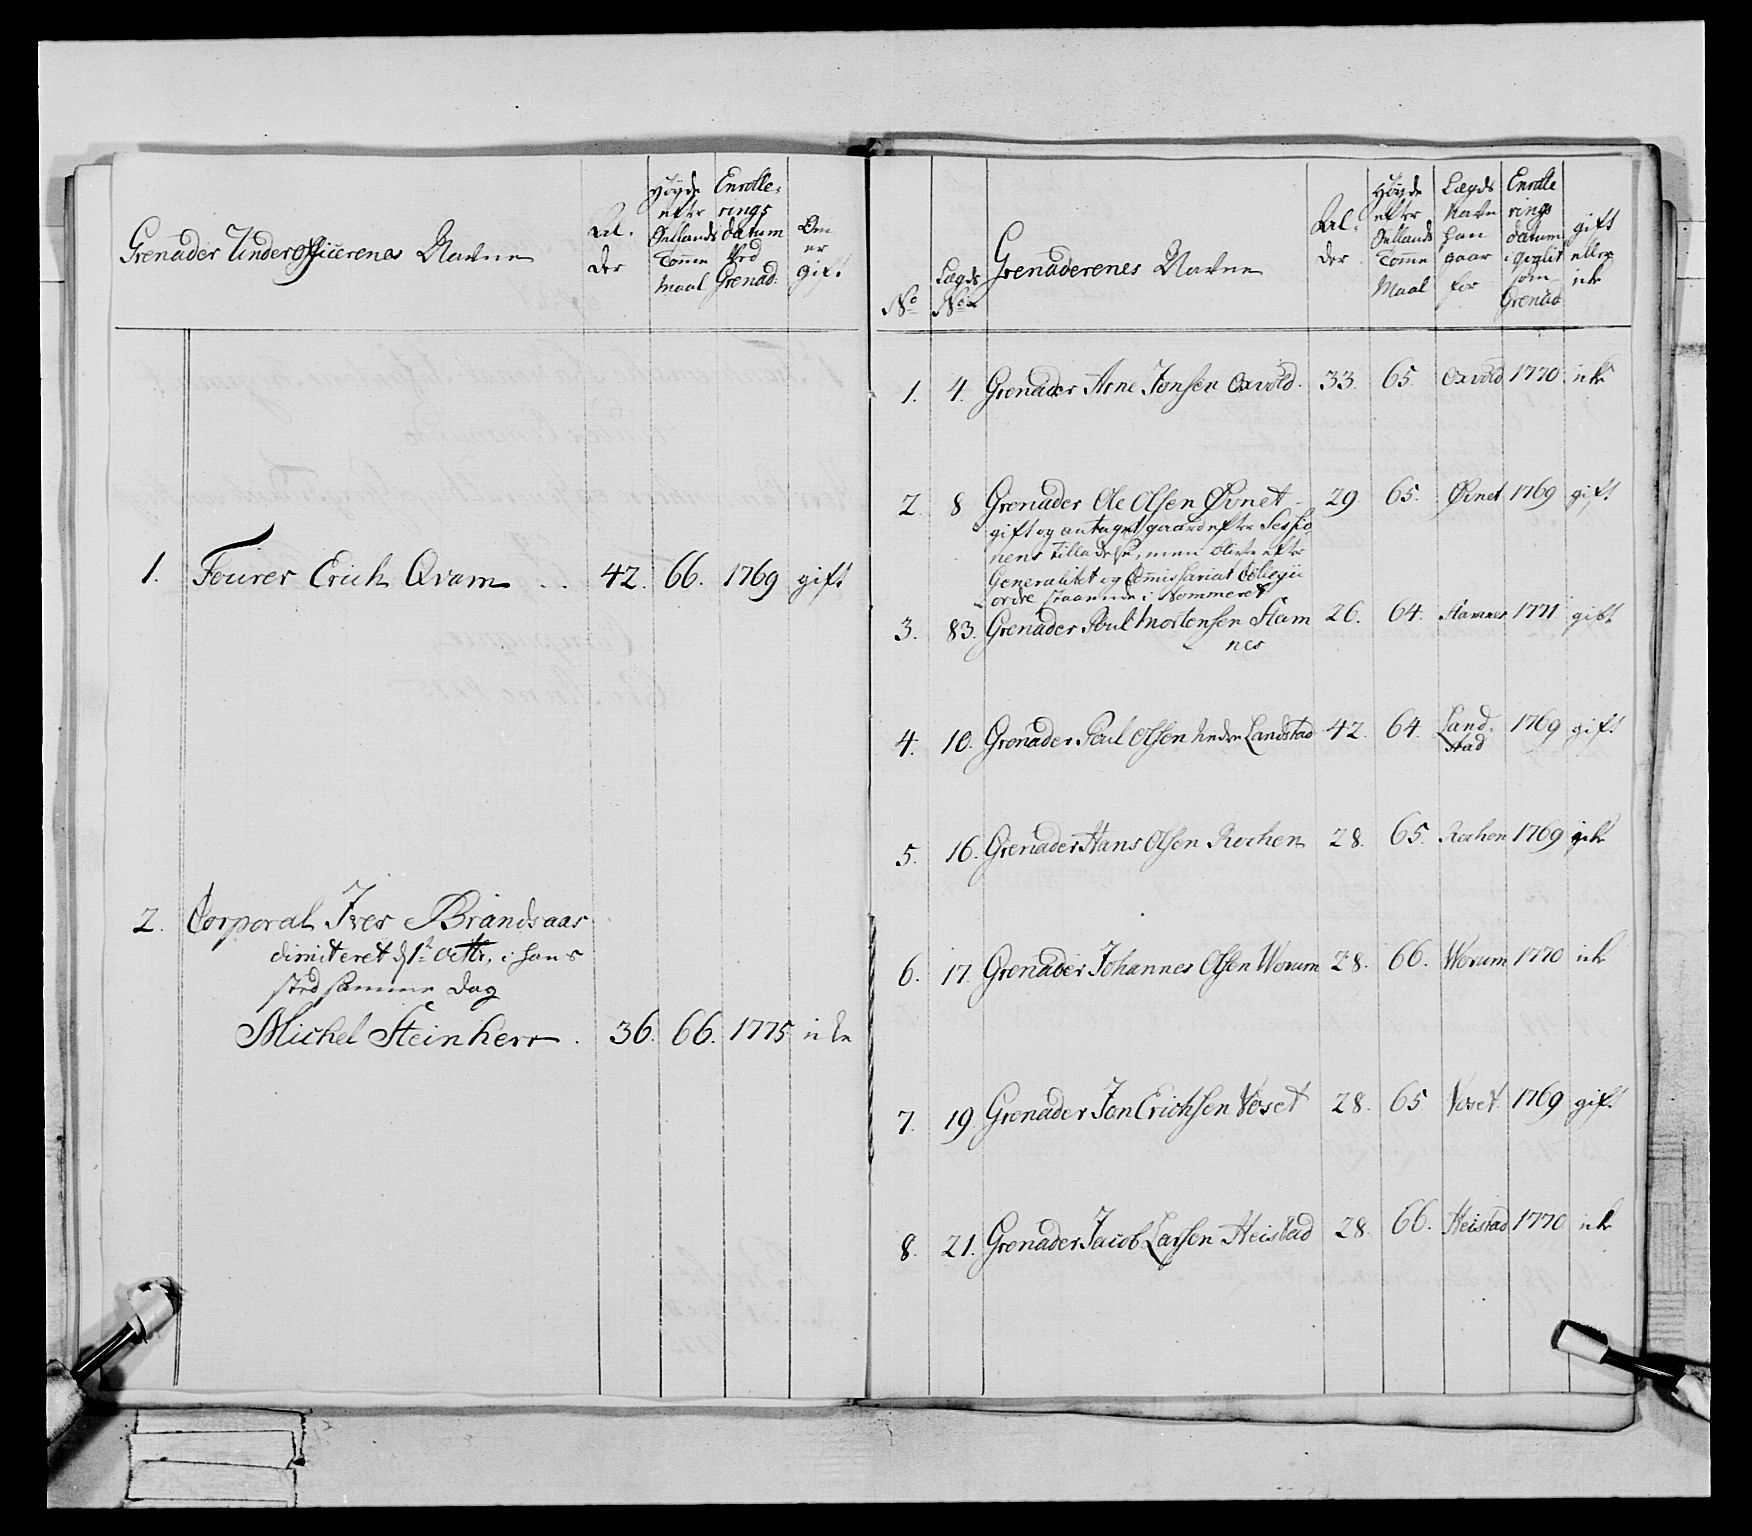 Grenader Underofficerenes Navne
Al-
der
Høyde
efter
Sellands
Tomme
Maal
Enrolle-
rings
datum
ved
Grenad:
Om
er
gift
1. Fourer Erich Qvam . . 42. 66. 1769 gift
2. Corporal Iver Brandsaas
dimiteret d 1t Octbr. i hans
sted samme Dag
Michel Steinherr . 36. 66. 1775 icke
No
Lægds
No
Grenaderenes Navne
Al-
der
Høyde
efter
Sellands
Tomme
Maal
Lægds
Navn
han
staar
for
Enrolle
rings
datum
som
Grenad
gift
eller
icke
1. 4. Grenader Arne Jonsen Oxvold. 33. 65. Oxvold 1770 icke
2. 8 Grenader Ole Olsen Øvnet - 29. 65. Øvnet 1769 gift
gift og antaget gaard efter Sessio-
nens tilladelse, men bliver efter
Generalitet og Comissariat Collegii
ordre staaende i Nommeret
3. 83. Grenader Poul Mortensen Stam 26. 64. Stamnes 1771 gift
nes
4. 10. Grenader Poul Olsen Nedre Landstad 42. 64. Land- 1769 gift
stad
5. 16. Grenader Hans Olsen Rochen 28. 65. Rochen 1769 icke
6. 17. Grenader Johannes Olsen Worum 28. 66. Worum 1770 icke
7. 19. Grenader Jon Erichsen Voset 28. 65 Voset 1769 gift
8. 21. Grenader Jacob Larsen Heistad 28. 66. Heistad 1770 icke